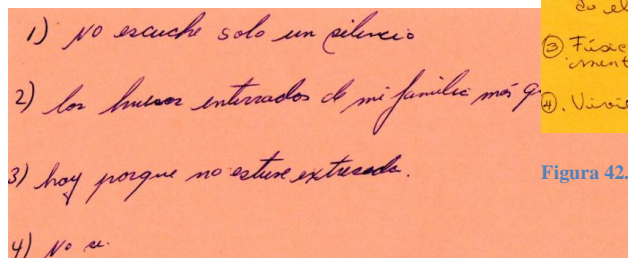 1) No escuche solo un silencio
2) los huesos enterrados de mi familia más
3) hoy porque no estuve extresada.
4) No se.
do el
③ Físic
ment
④. Vivi
Figura 42.